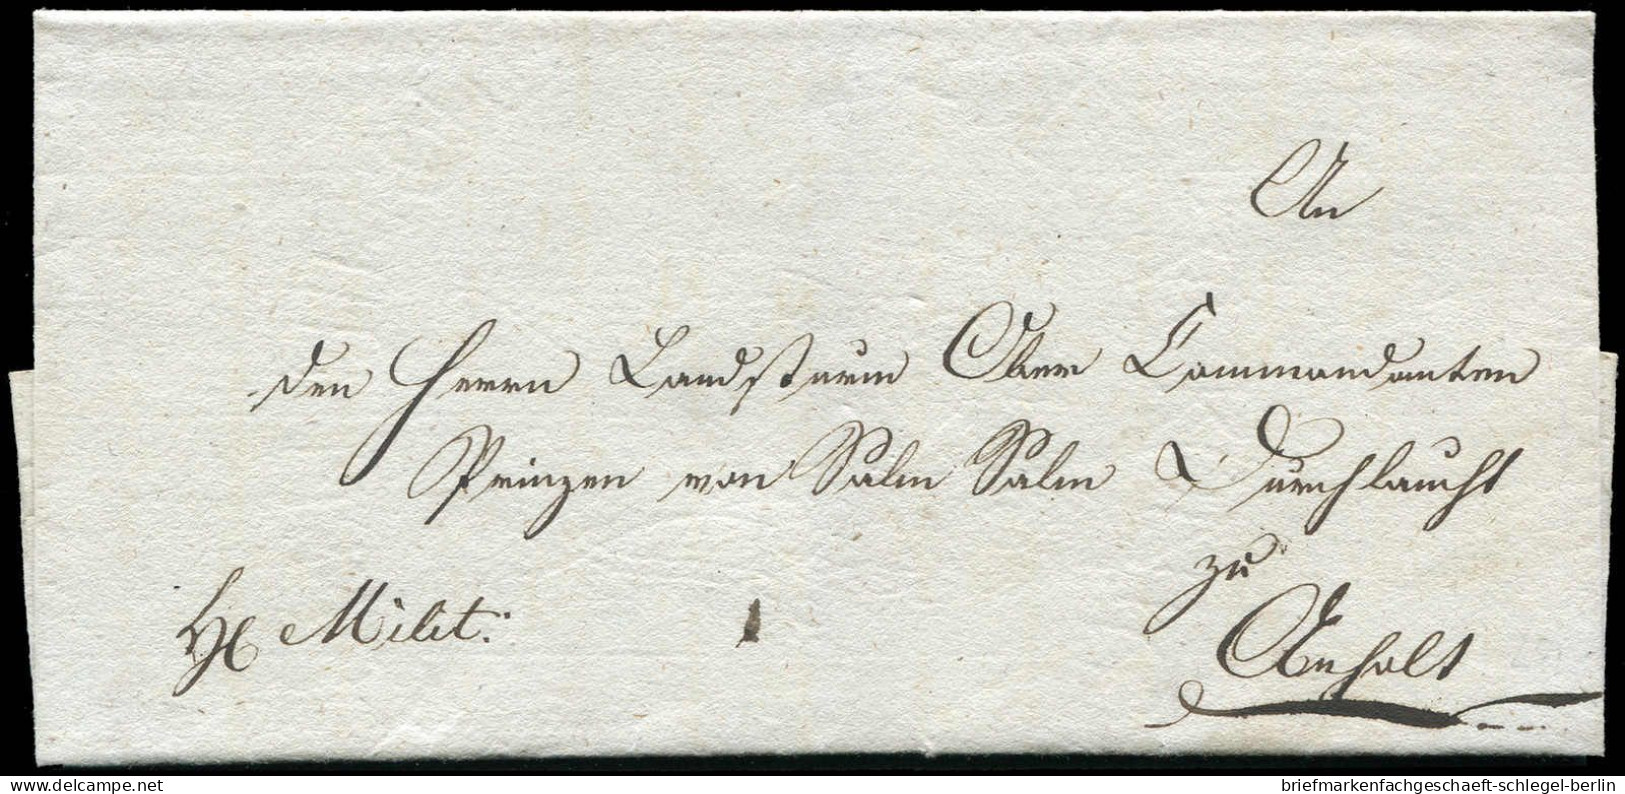 An
den Herrn Landsturm Ober Commandanten
Prinzen von Salm Salm Durchlaucht
zu
Milit:
Anholt
briefmarkenfachgeschaeft-schlegel-berlin